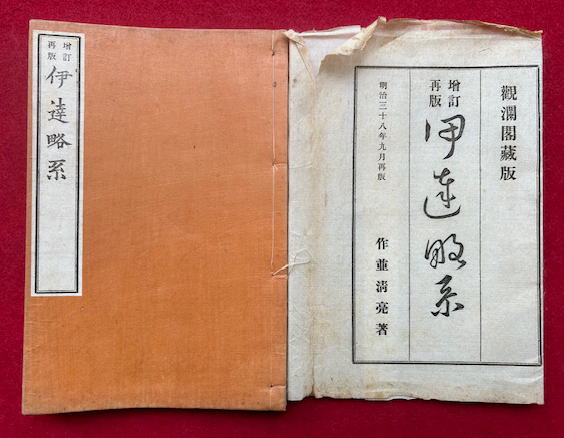 增訂
再版
伊達略系
觀瀾閣藏版
增訂
再版
伊達略系
明治三十八年九月再版
作並淸亮著